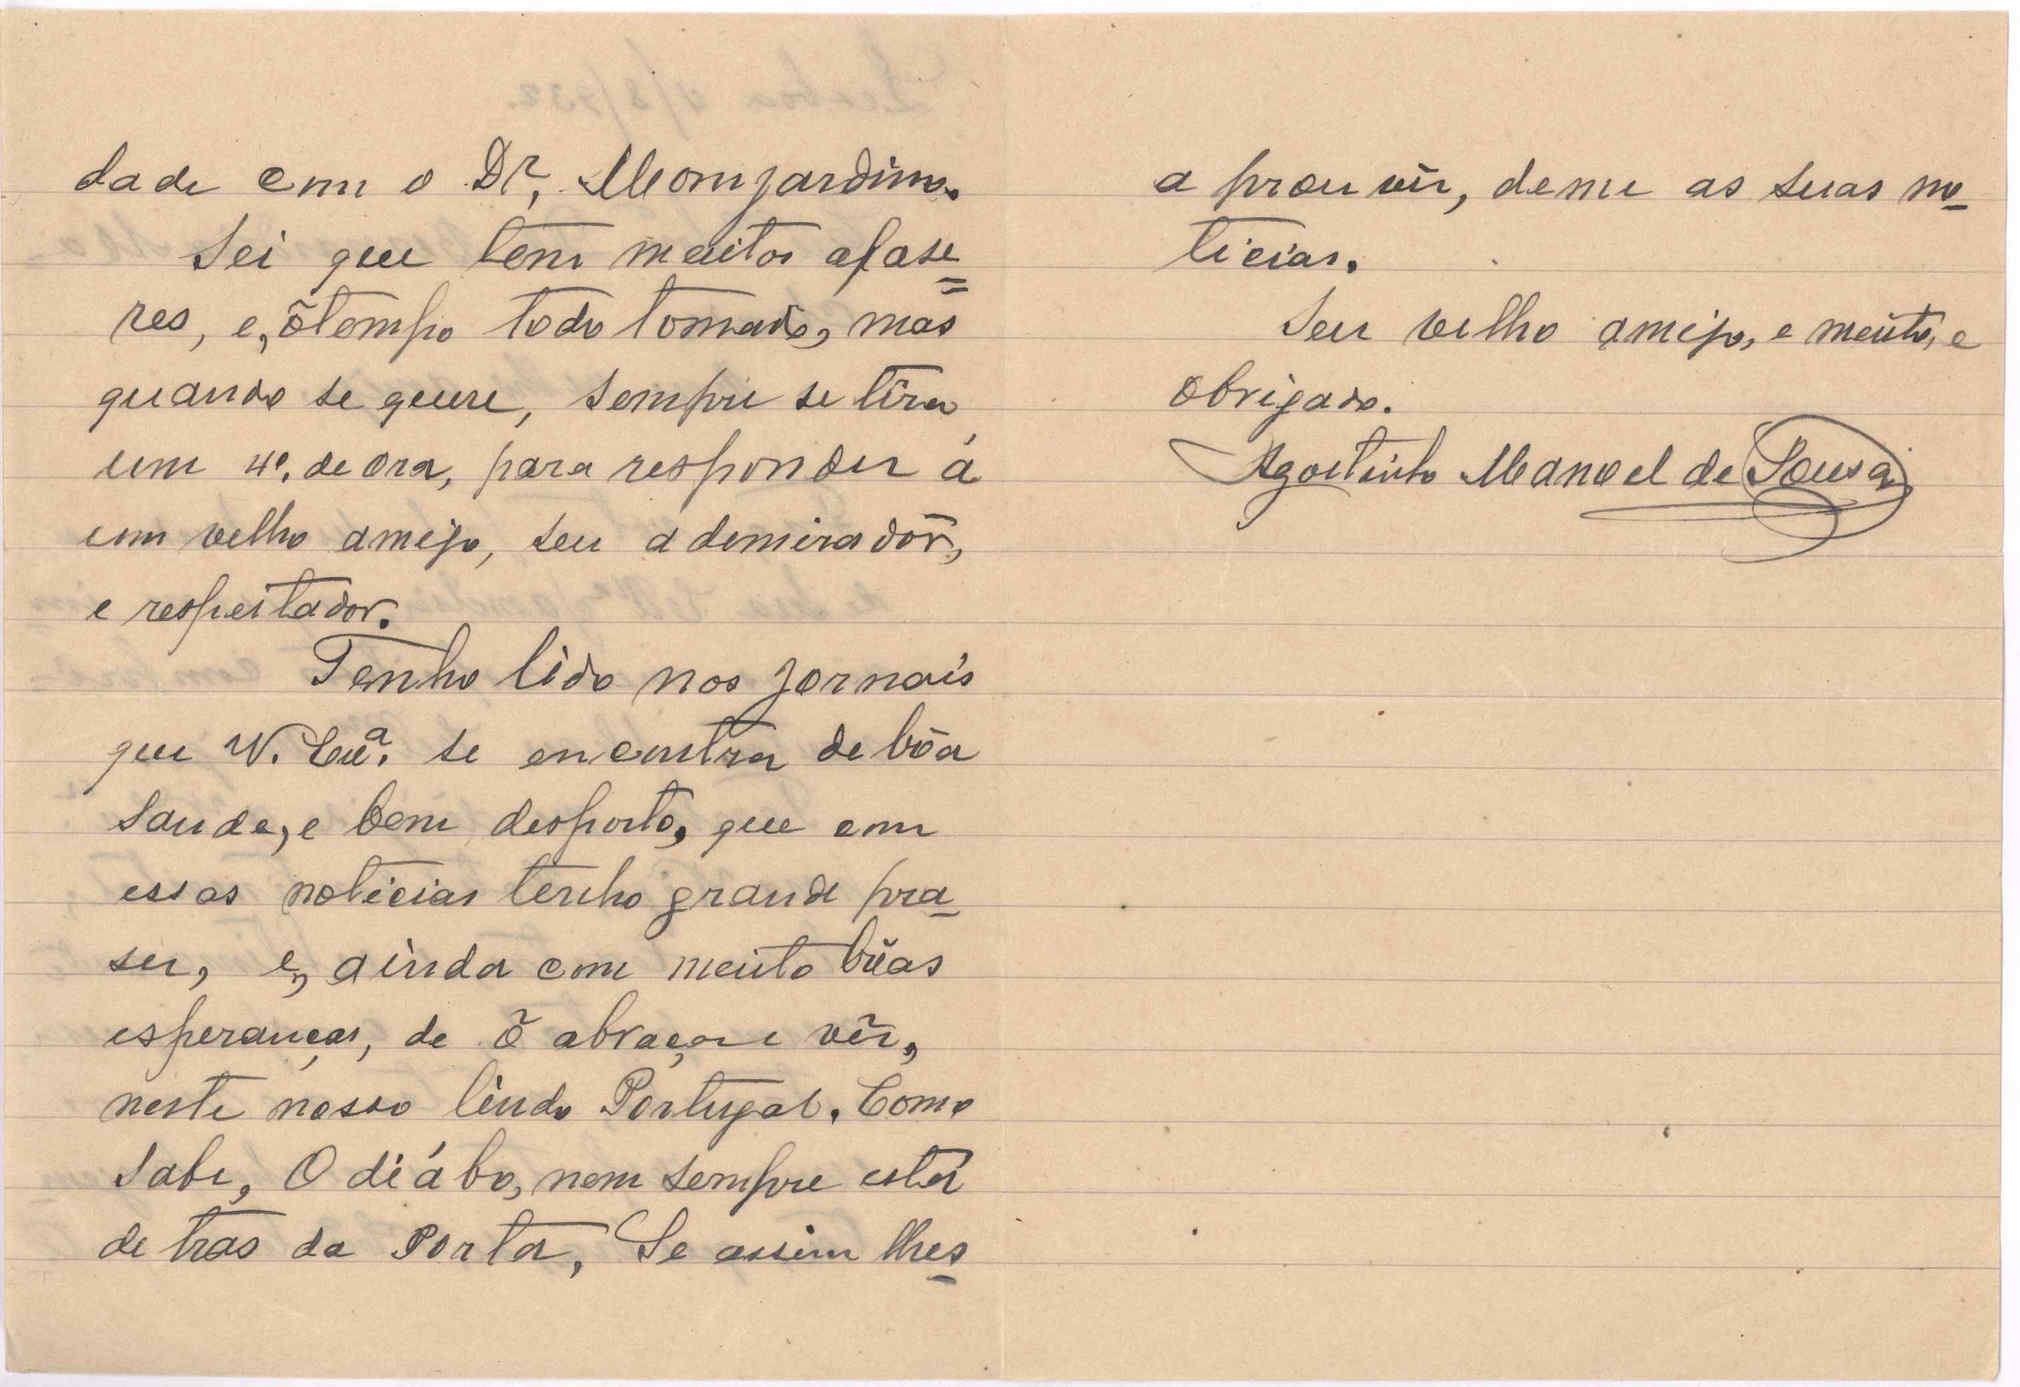 dade com o Dr, Monjardim.
Sei que tem muitos afase=
res, e, õ tempo todo tomado, mas
quando se quere, sempre se tira
um 4º. de ora, para responder á
um velho amigo, seu ademirador,
e respeitador.
Tenho lido nos jornais
que V. Exª. se encontra de bôa
saude, e bem desposto, que com
essas noticias tenho grande pra-
ser, e, ainda com muito bŭas
esperanças, de õ abraçar e vêr,
neste nosso lindo Portugal. Como
sabe, O diábo, nem sempre está
de tras da Porta, Se assim lhes-
a prouvér, deme as suas no-
ticias.
Seu velho amigo, e muito, e
Obrigado.
Agostinho Manoel de Sousa